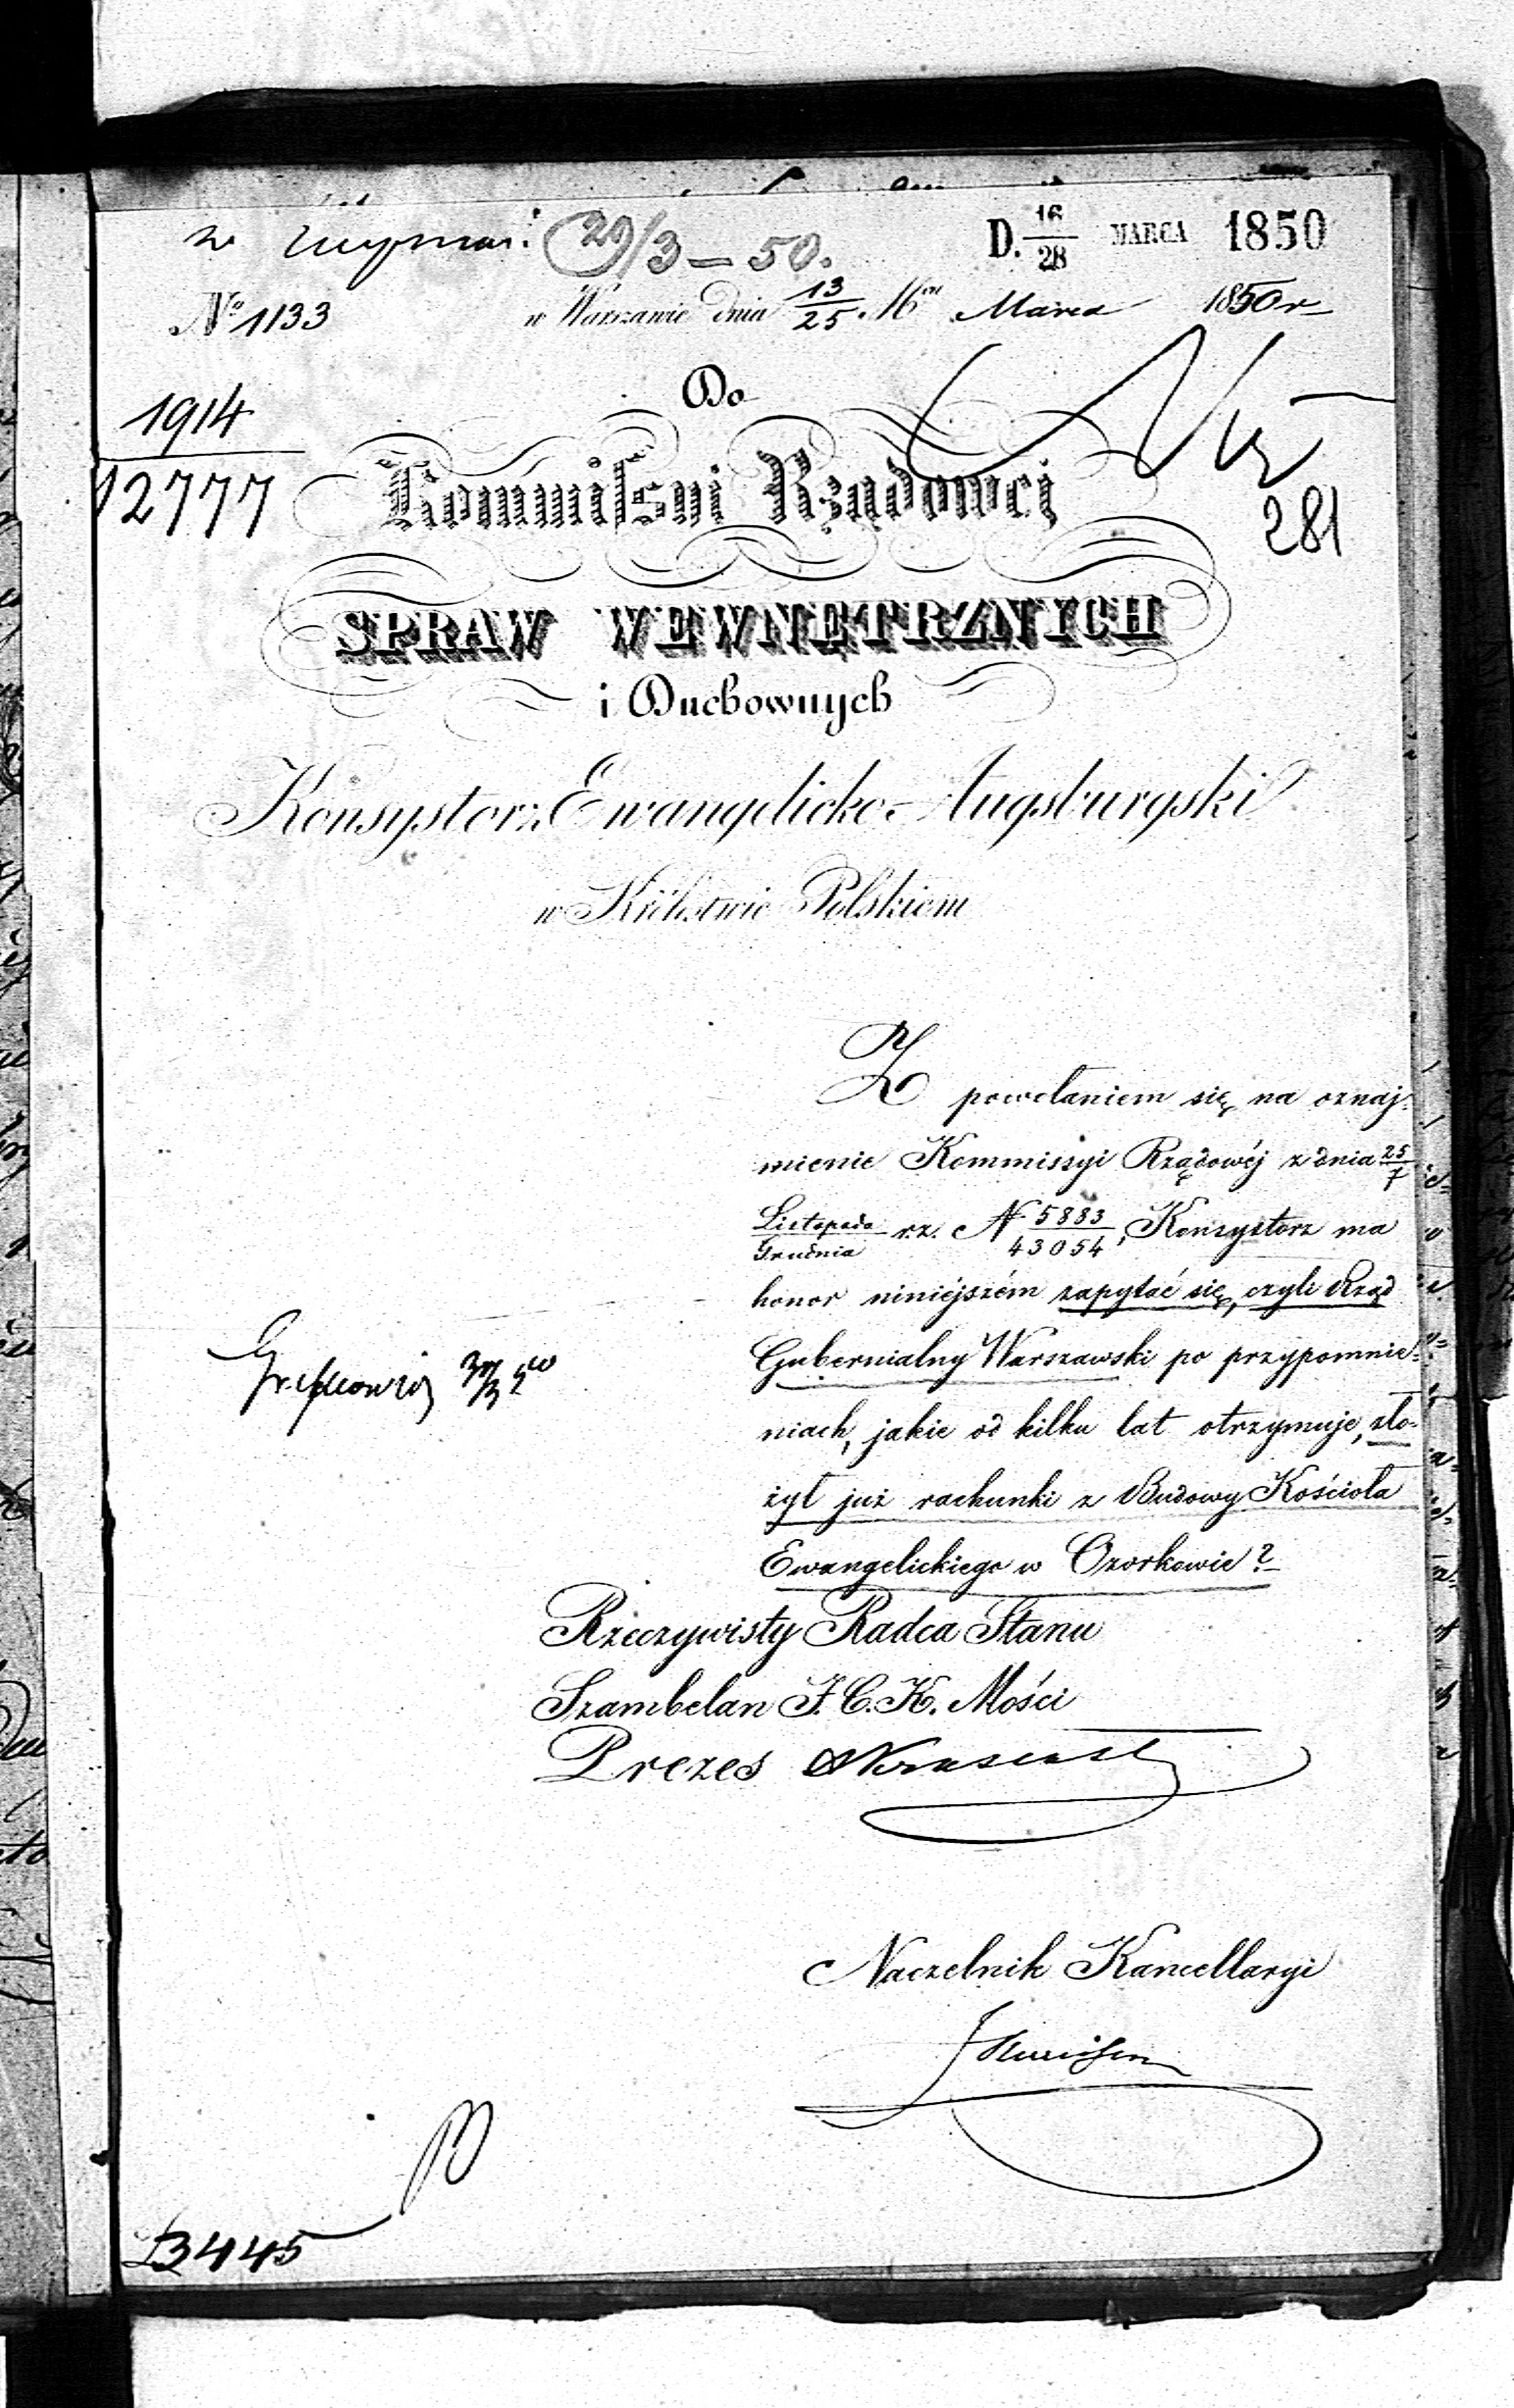 29/3 — 50.
D. 16/28 MARCA 1850
№ 1133
w Warszawie dnia 13/25 Mca Marca 1850 r
1914
12777
Do
Kommissyi Rządowej
281
SPRAW WEWNĘTRZNYCH
i Duchownych
Konsystorz Ewangelicko-Augsburgski
w Królestwie Polskiem
Z powołaniem się na oznaj-
mienie Kommissyi Rządowéj z dnia 25/7
Listopada/Grudnia r.z. N 5883/43054, Konsystorz ma
honor niniéjszém zapytać się, czyli Rząd
Gubernialny Warszawski po przypomnie-
niach, jakie od kilku lat otrzymuje, zło-
żył już rachunki z Budowy Kościoła
Ewangelickiego w Ozorkowie?
Rzeczywisty Radca Stanu
Szambelan J. C. K. Mości
Prezes
Naczelnik Kancellaryi
3445